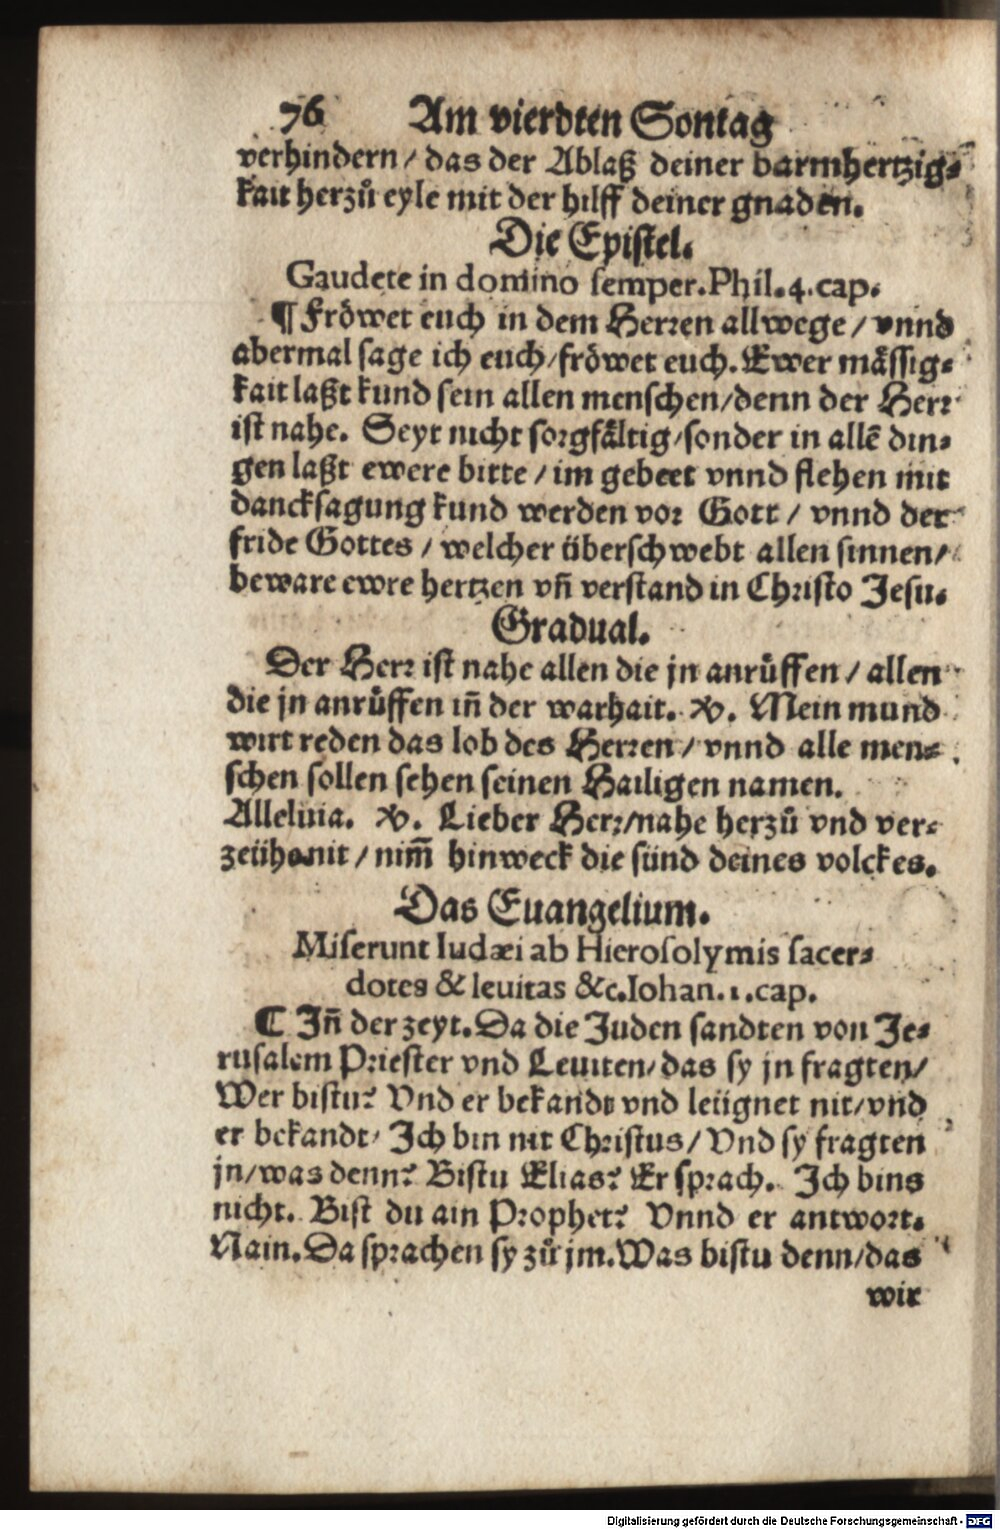 76 Am vierdten Sontag
verhindern / das der Ablaß deiner barmhertzig⸗
kait herzů eyle mit der hilff deiner gnaden.
Die Epistel.
Gaudete in domino semper. Phil. 4. cap.
¶ Fröwet euch in dem Herꝛen allwege / vnnd
abermal sage ich euch / fröwet euch. Ewer mässig⸗
kait laßt kund sein allen menschen / denn der Herꝛ
ist nahe. Seyt nicht soꝛgfältig / sonder in allē din⸗
gen laßt ewere bitte / im gebeet vnnd flehen mit
dancksagung kund werden voꝛ Gott / vnnd der
fride Gottes / welcher überschwebt allen sinnen /
beware ewre hertzen vn̄ verstand in Chꝛisto Jesu.
Gradual.
Der Herꝛ ist nahe allen die jn anrůffen / allen
die jn anrůffen in̄ der warhait. ℣. Mein mund
wirt reden das lob des Herꝛen / vnnd alle men⸗
schen sollen sehen seinen Hailigen namen.
Alleluia. ℣. Lieber Herꝛ / nahe herzů vnd ver⸗
zeühe nit / nim̄ hinweck die sünd deines volckes.
Das Euangelium.
Miserunt Iudæi ab Hierosolymis sacer⸗
dotes & leuitas &c. Iohan. 1. cap.
¶ In̄ der zeyt. Da die Juden sandten von Je⸗
rusalem Pꝛiester vnd Leuiten / das sy jn fragten /
Wer bistu? Vnd er bekandt vnd leügnet nit / vnd
er bekandt / Ich bin nit Chꝛistus / Vnd sy fragten
jn / was denn? Bistu Elias? Er spꝛach. Ich bins
nicht. Bist du ain Pꝛophet? Vnnd er antwoꝛt.
Nain. Da spꝛachen sy zů jm. Was bistu denn / das
wir
Digitalisierung gefördert durch die Deutsche Forschungsgemeinschaft - DFG